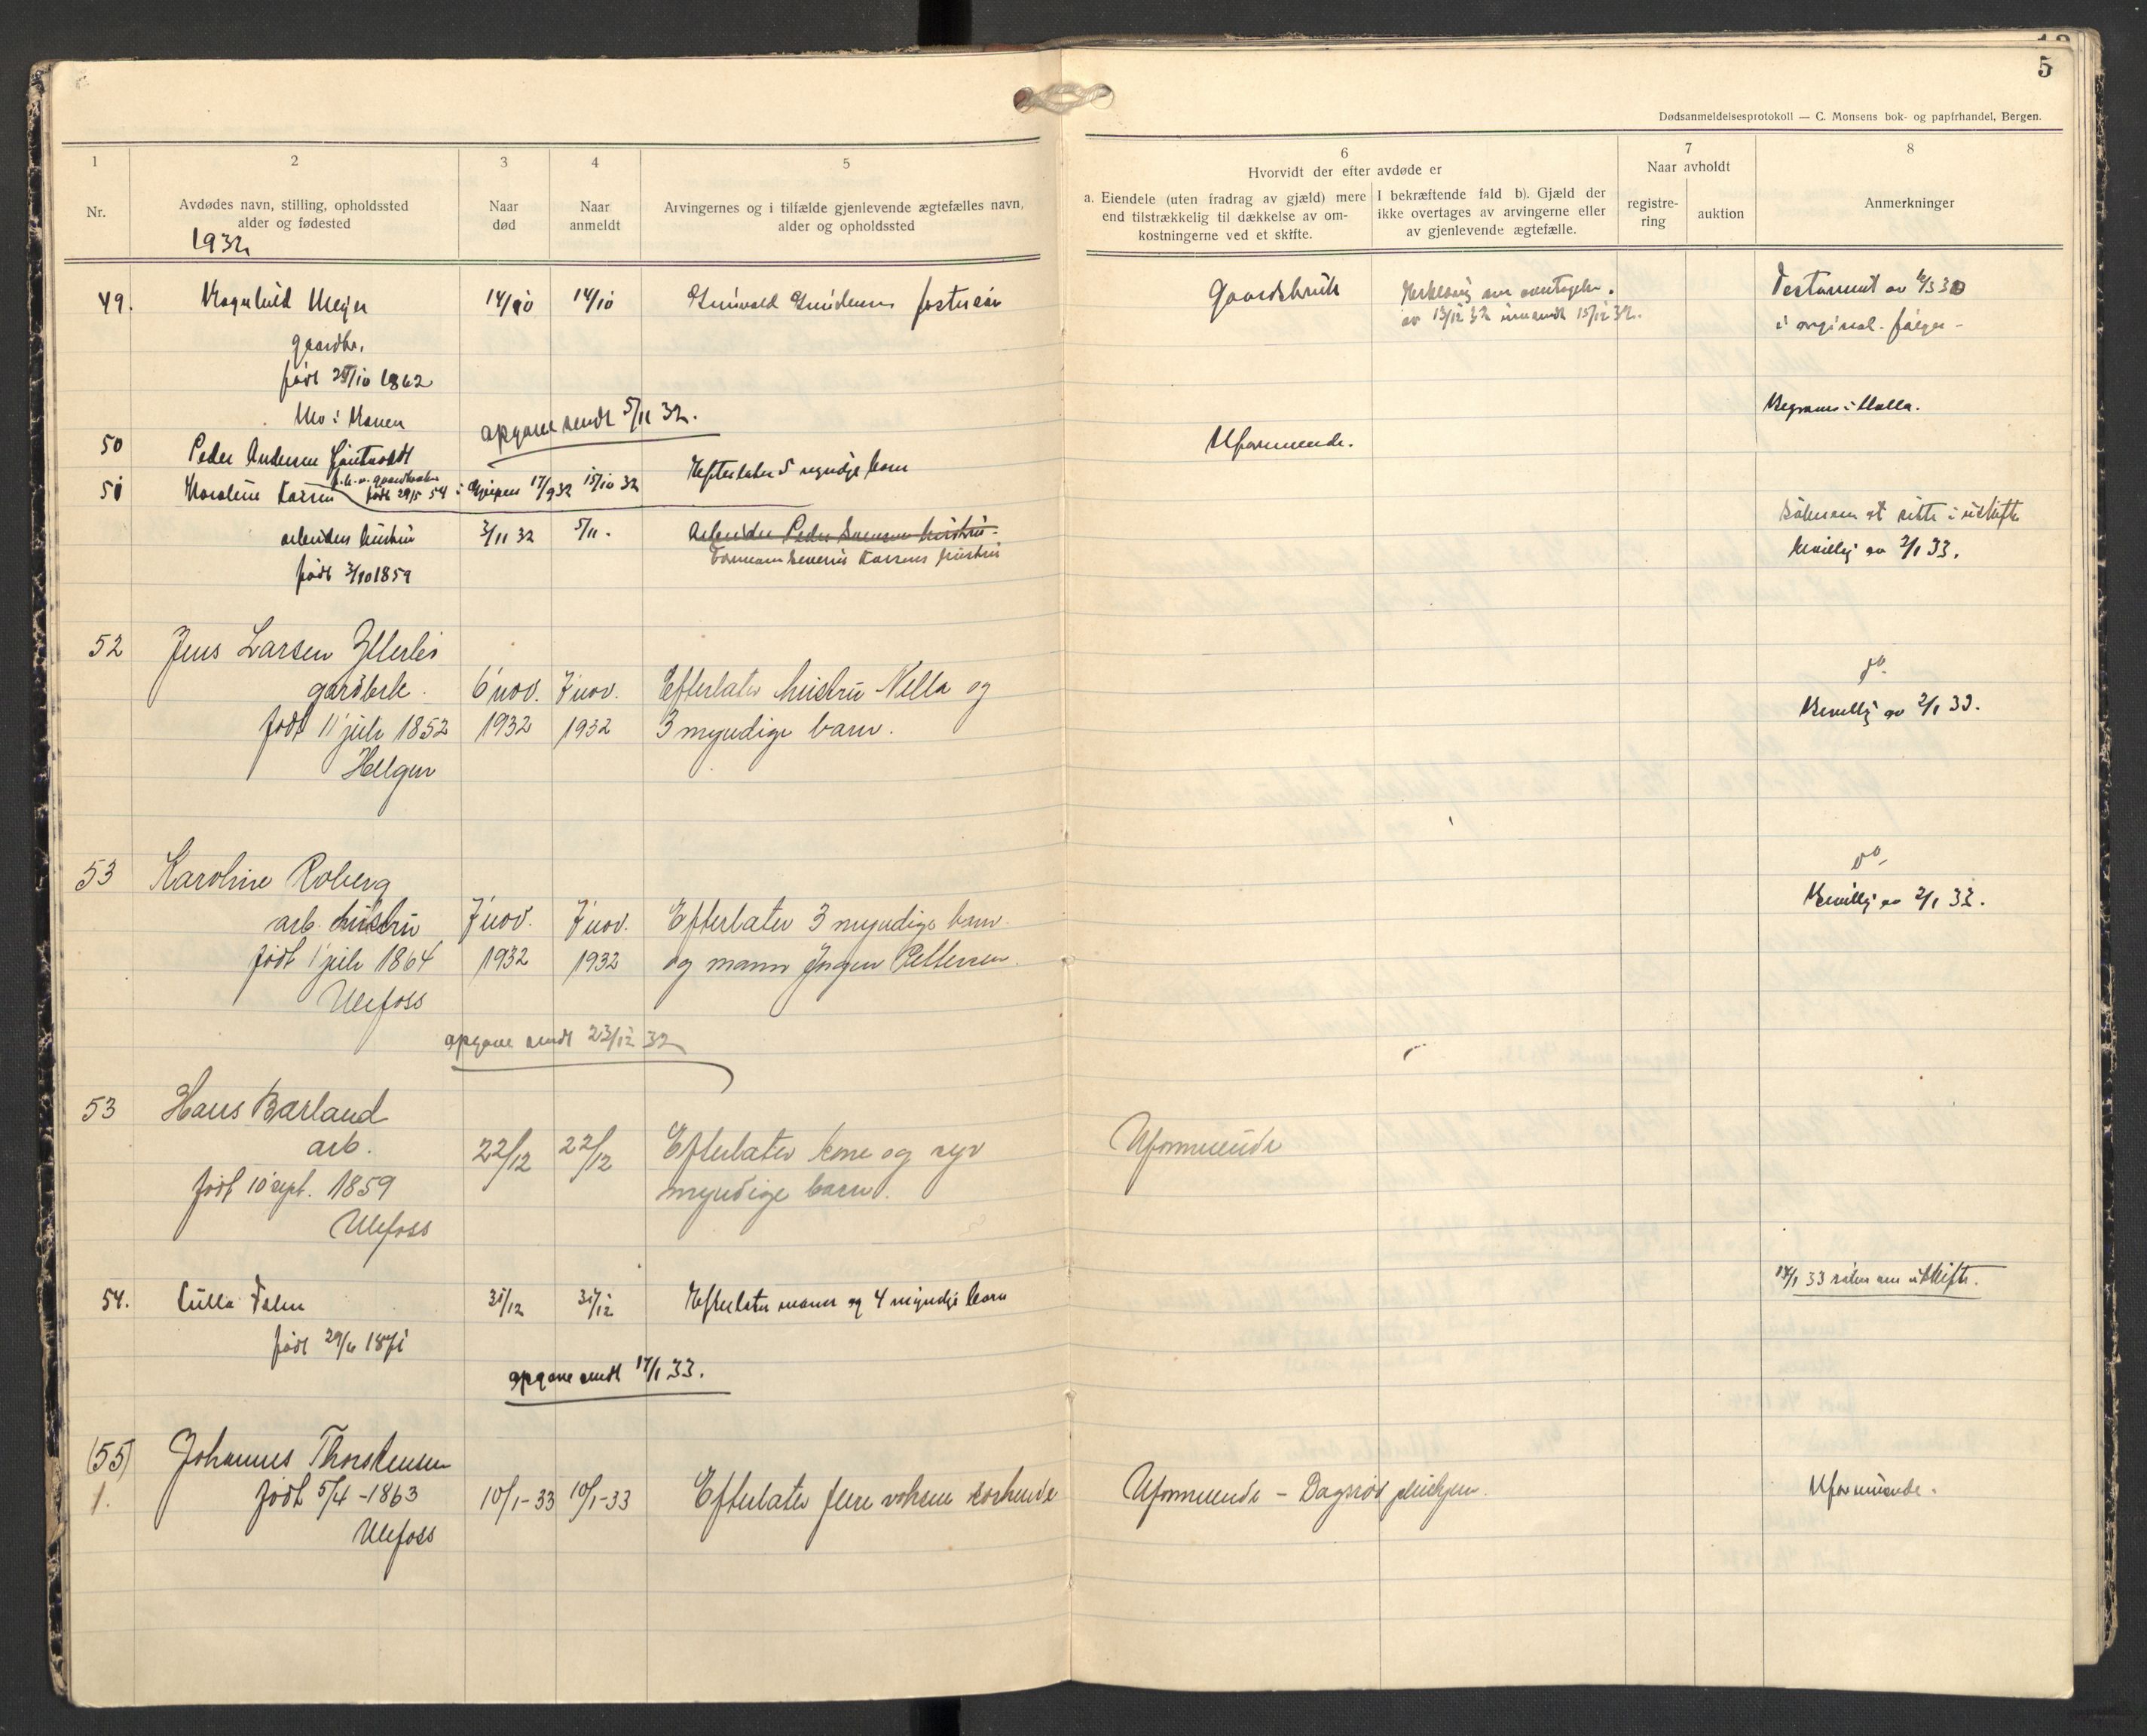 5
Dødsanmeldelsesprotokoll — C. Monsens bok- og papirhandel, Bergen.
1
Nr.
2
Avdødes navn, stilling, opholdssted
alder og fødested
1932
3
Naar
død
4
Naar
anmeldt
5
Arvingernes og i tilfælde gjenlevende ægtefælles navn,
alder og opholdssted
6
Hvorvidt der efter avdøde er
a. Eiendele (uten fradrag av gjæld) mere
end tilstrækkelig til dækkelse av om-
kostningerne ved et skifte.
I bekræftende fald b). Gjæld der
ikke overtages av arvingerne eller
av gjenlevende ægtefælle.
7
Naar avholdt
registre-
ring
auktion
8
Anmerkninger
49. Ragnhild Meyer 14/10 14/10 fostersøn Gaardsbruk Testament av
av 13/12 32 15/12 32.
i orginal
gaardbr.
født 1862
opgave sendt 5/11 32.
50 Peder Andersen
Uformuende.
Efterlater 5 myndige barn
51 Karoline 17/9 32 15/10 32
arbeiders hustru 3/11 32 5/11. Arbeider Peder hustru
født 3/10 1859
hustru
bevillg av 2/1 33.
52 Jens Larsen Ytterli
gardbr. 6' nov. 7' nov. Efterlater hustru Nella og
do
født 11' juli 1852 1932 1932 3 myndige barn.
Bevillg av 2/1 33.
Helgen
53 Karoline Roberg
do
arb. hustru 7' nov. 7' nov. Efterlater 3 myndige barn
Bevillg av 2/1 33.
født 1' juli 1864 1932 1932 og mann Jørgen Pettersen.
Ulefoss
opgave sendt 23/12 32
53 Hans Barland
arb. 22/12 22/12 Efterlater kone og syv Uformuende
født 10 sept. 1859 myndige barn.
Ulefoss
54. 31/12 31/12 Efterlater mann og 4 myndige barn
33 søker om utskifte.
født 29/6 1871
opgave sendt 17/1 33.
(55) Johannes Thorstensen
1. født 5/4-1863 10/1-33 10/1-33 Efterlater flere voksne søskende Uformuende - Dagsrud pleiehjem. Uformuende.
Ulefoss